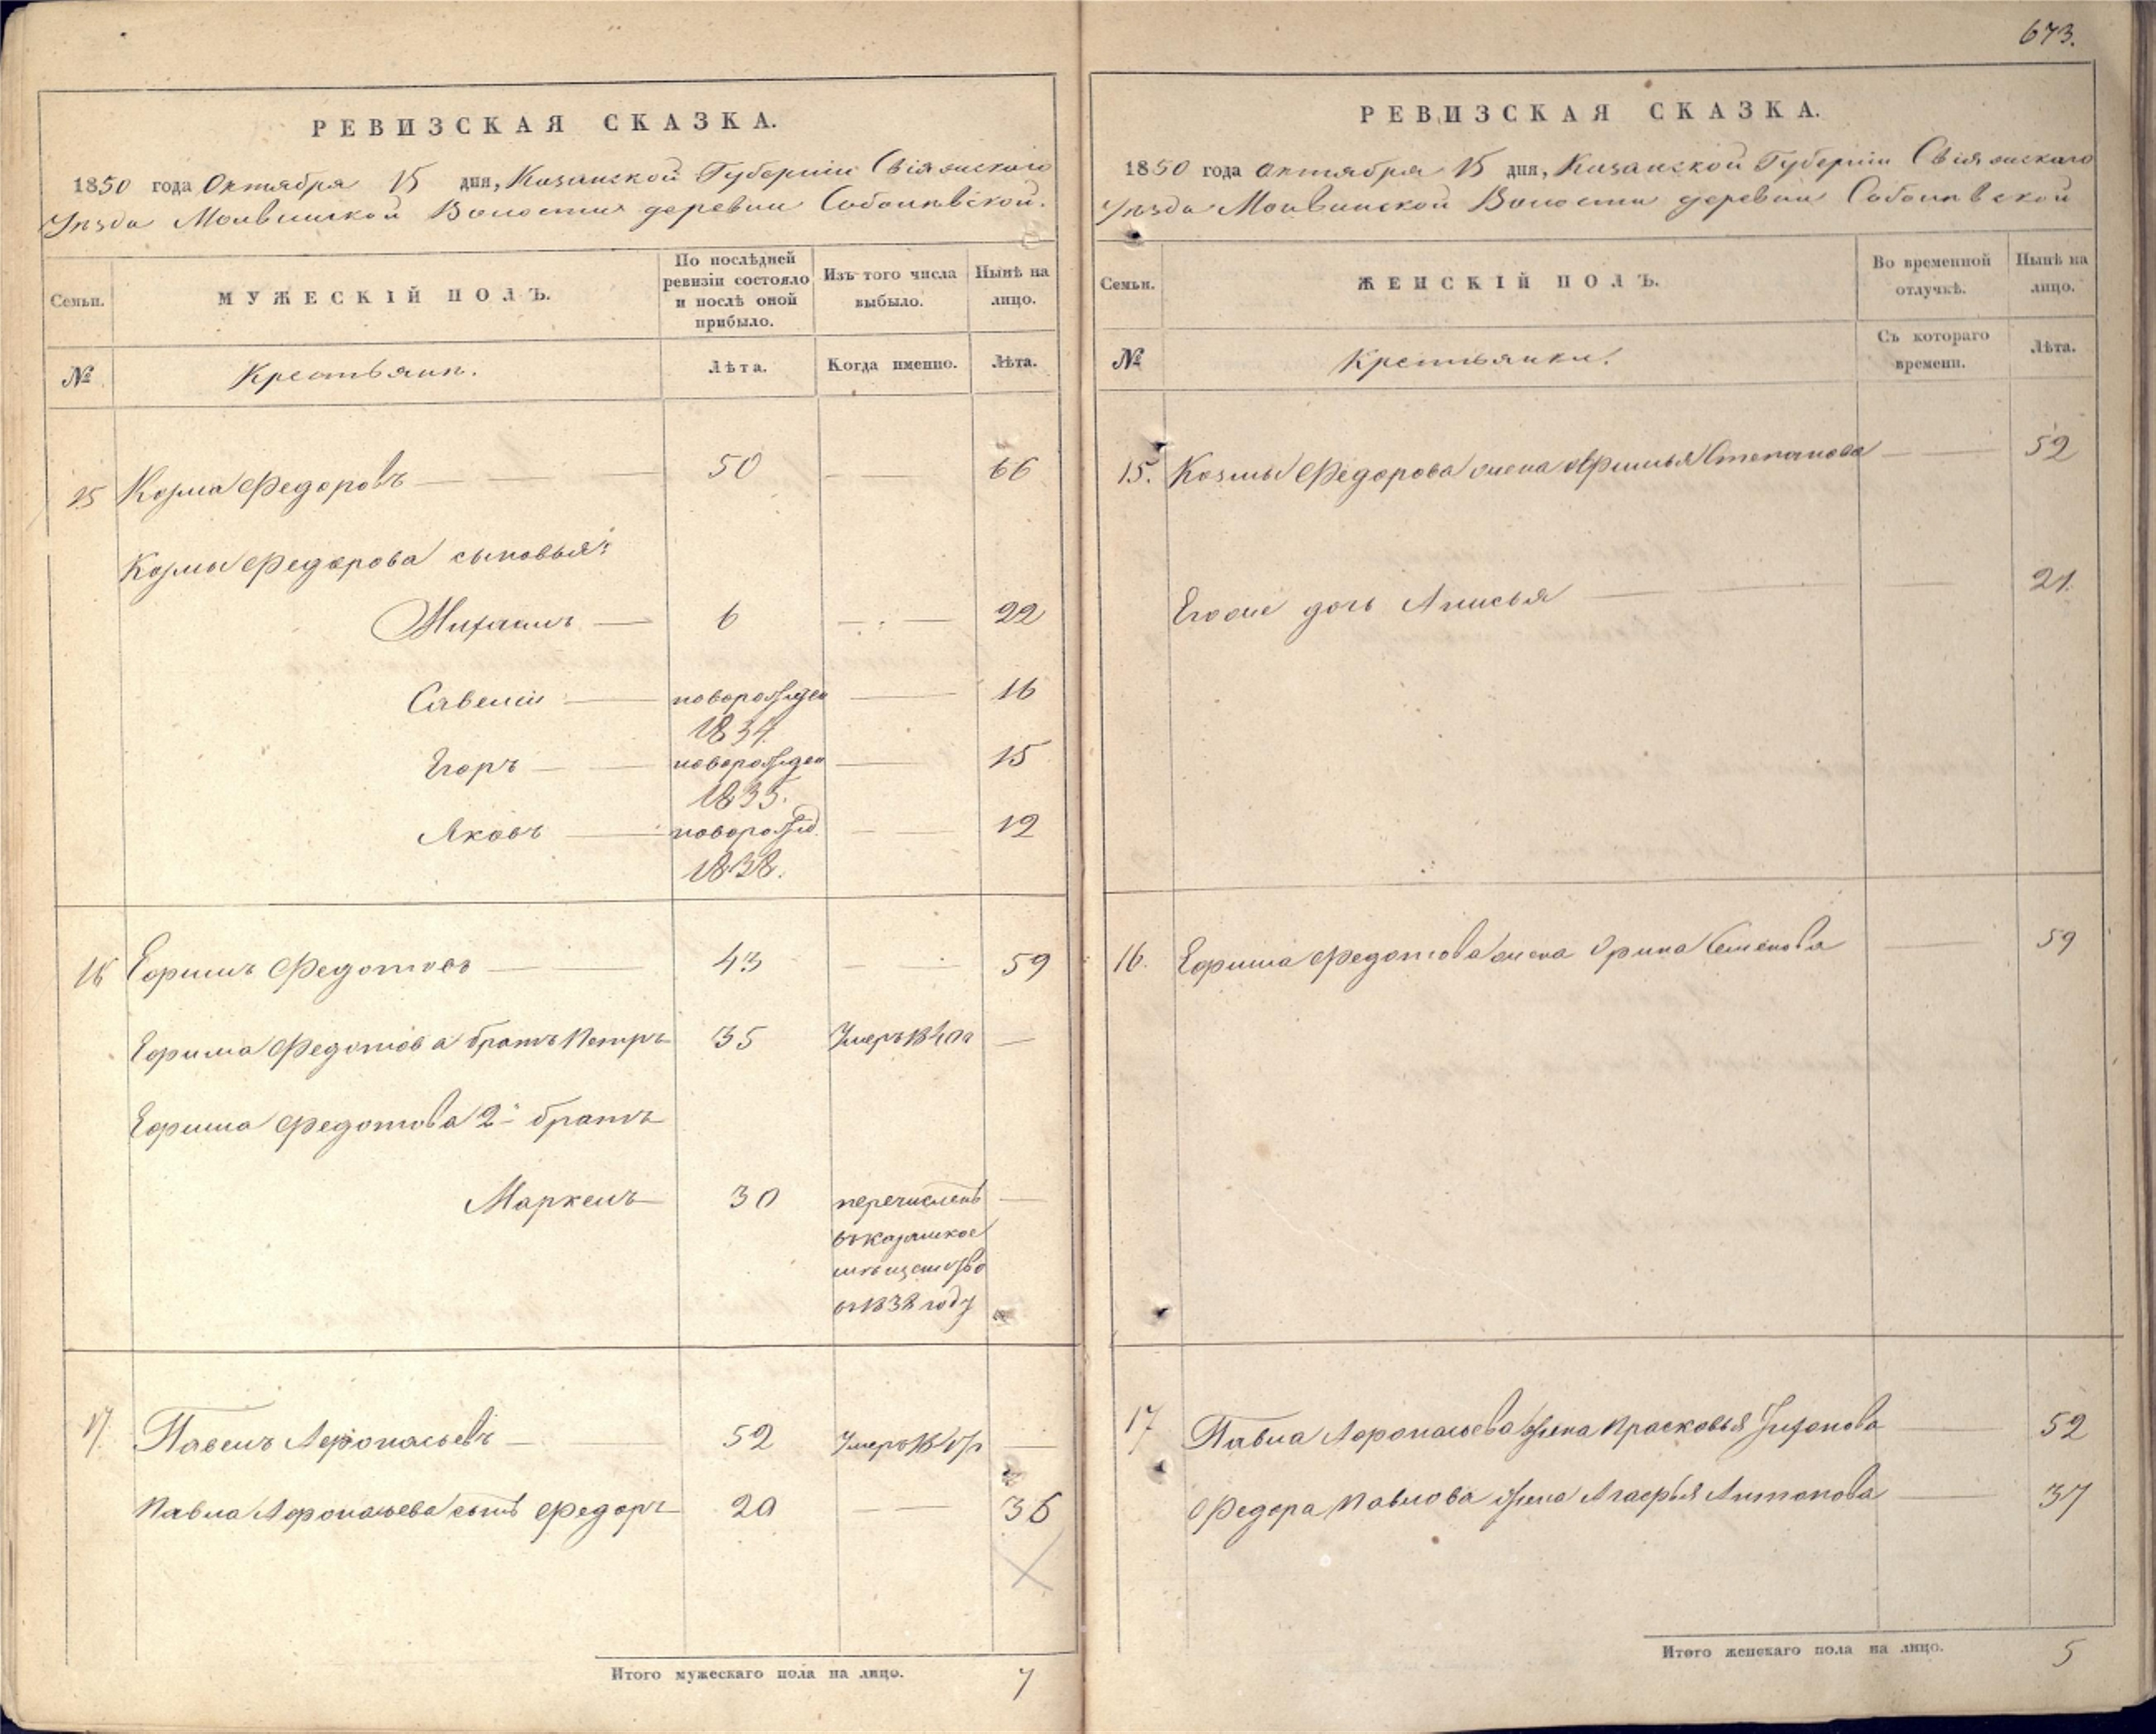 673.
РЕВИЗСКАЯ СКАЗКА.
1850 года Октября 15 дня, Казанской Губернiи Свiяжскаго
Уѣзда Молвинской Волости деревни
Семьи.
МУЖЕСКIЙ ПОЛЪ.
По послѣдней
ревизiи состояло
и послѣ оной
прибыло.
Изъ того числа
выбыло.
Нынѣ на
лицо.
№
Крестьяне.
Лѣта.
Когда именно.
Лѣта.
15 Козма Федоровъ 50 66
Козмы Федорова сыновья:
Михаилъ 6 22
Савелiй новорожден 16
1834.
Егоръ новорожден 15
1835.
Яковъ новорожд. 12
1838.
16 Ефимъ Федотовъ 43 59
Ефима Федотова братъ Петръ 35 Умеръ 1840
Ефима Федотова 2й братъ
Маркелъ 30 перечисленъ
въ казанское
мѣщанство
въ 1838 году
17. Павелъ Афонасьевъ 52 Умеръ
Павла Афонасьева сынъ Федоръ 20 36
Итого мужескаго пола на лицо. 7
РЕВИЗСКАЯ СКАЗКА.
1850 года Октября 15 дня, Казанской Губернiи Свiяжскаго
Уѣзда Молвинской Волости деревни
Семьи.
ЖЕНСКIЙ ПОЛЪ.
Во временной
отлучкѣ.
Нынѣ на
лицо.
№
Крестьянки.
Съ котораго
времени.
Лѣта.
15. Козмы Федорова жена Афимья Степанова 52
Егоже дочь Анисья 21.
16. Ефима Федотова жена Орина Семенова 59
17 Павла Афонасьева жена Прасковья 52
Федора Павлова жена Агафья Антонова 37
Итого женскаго пола на лицо. 5